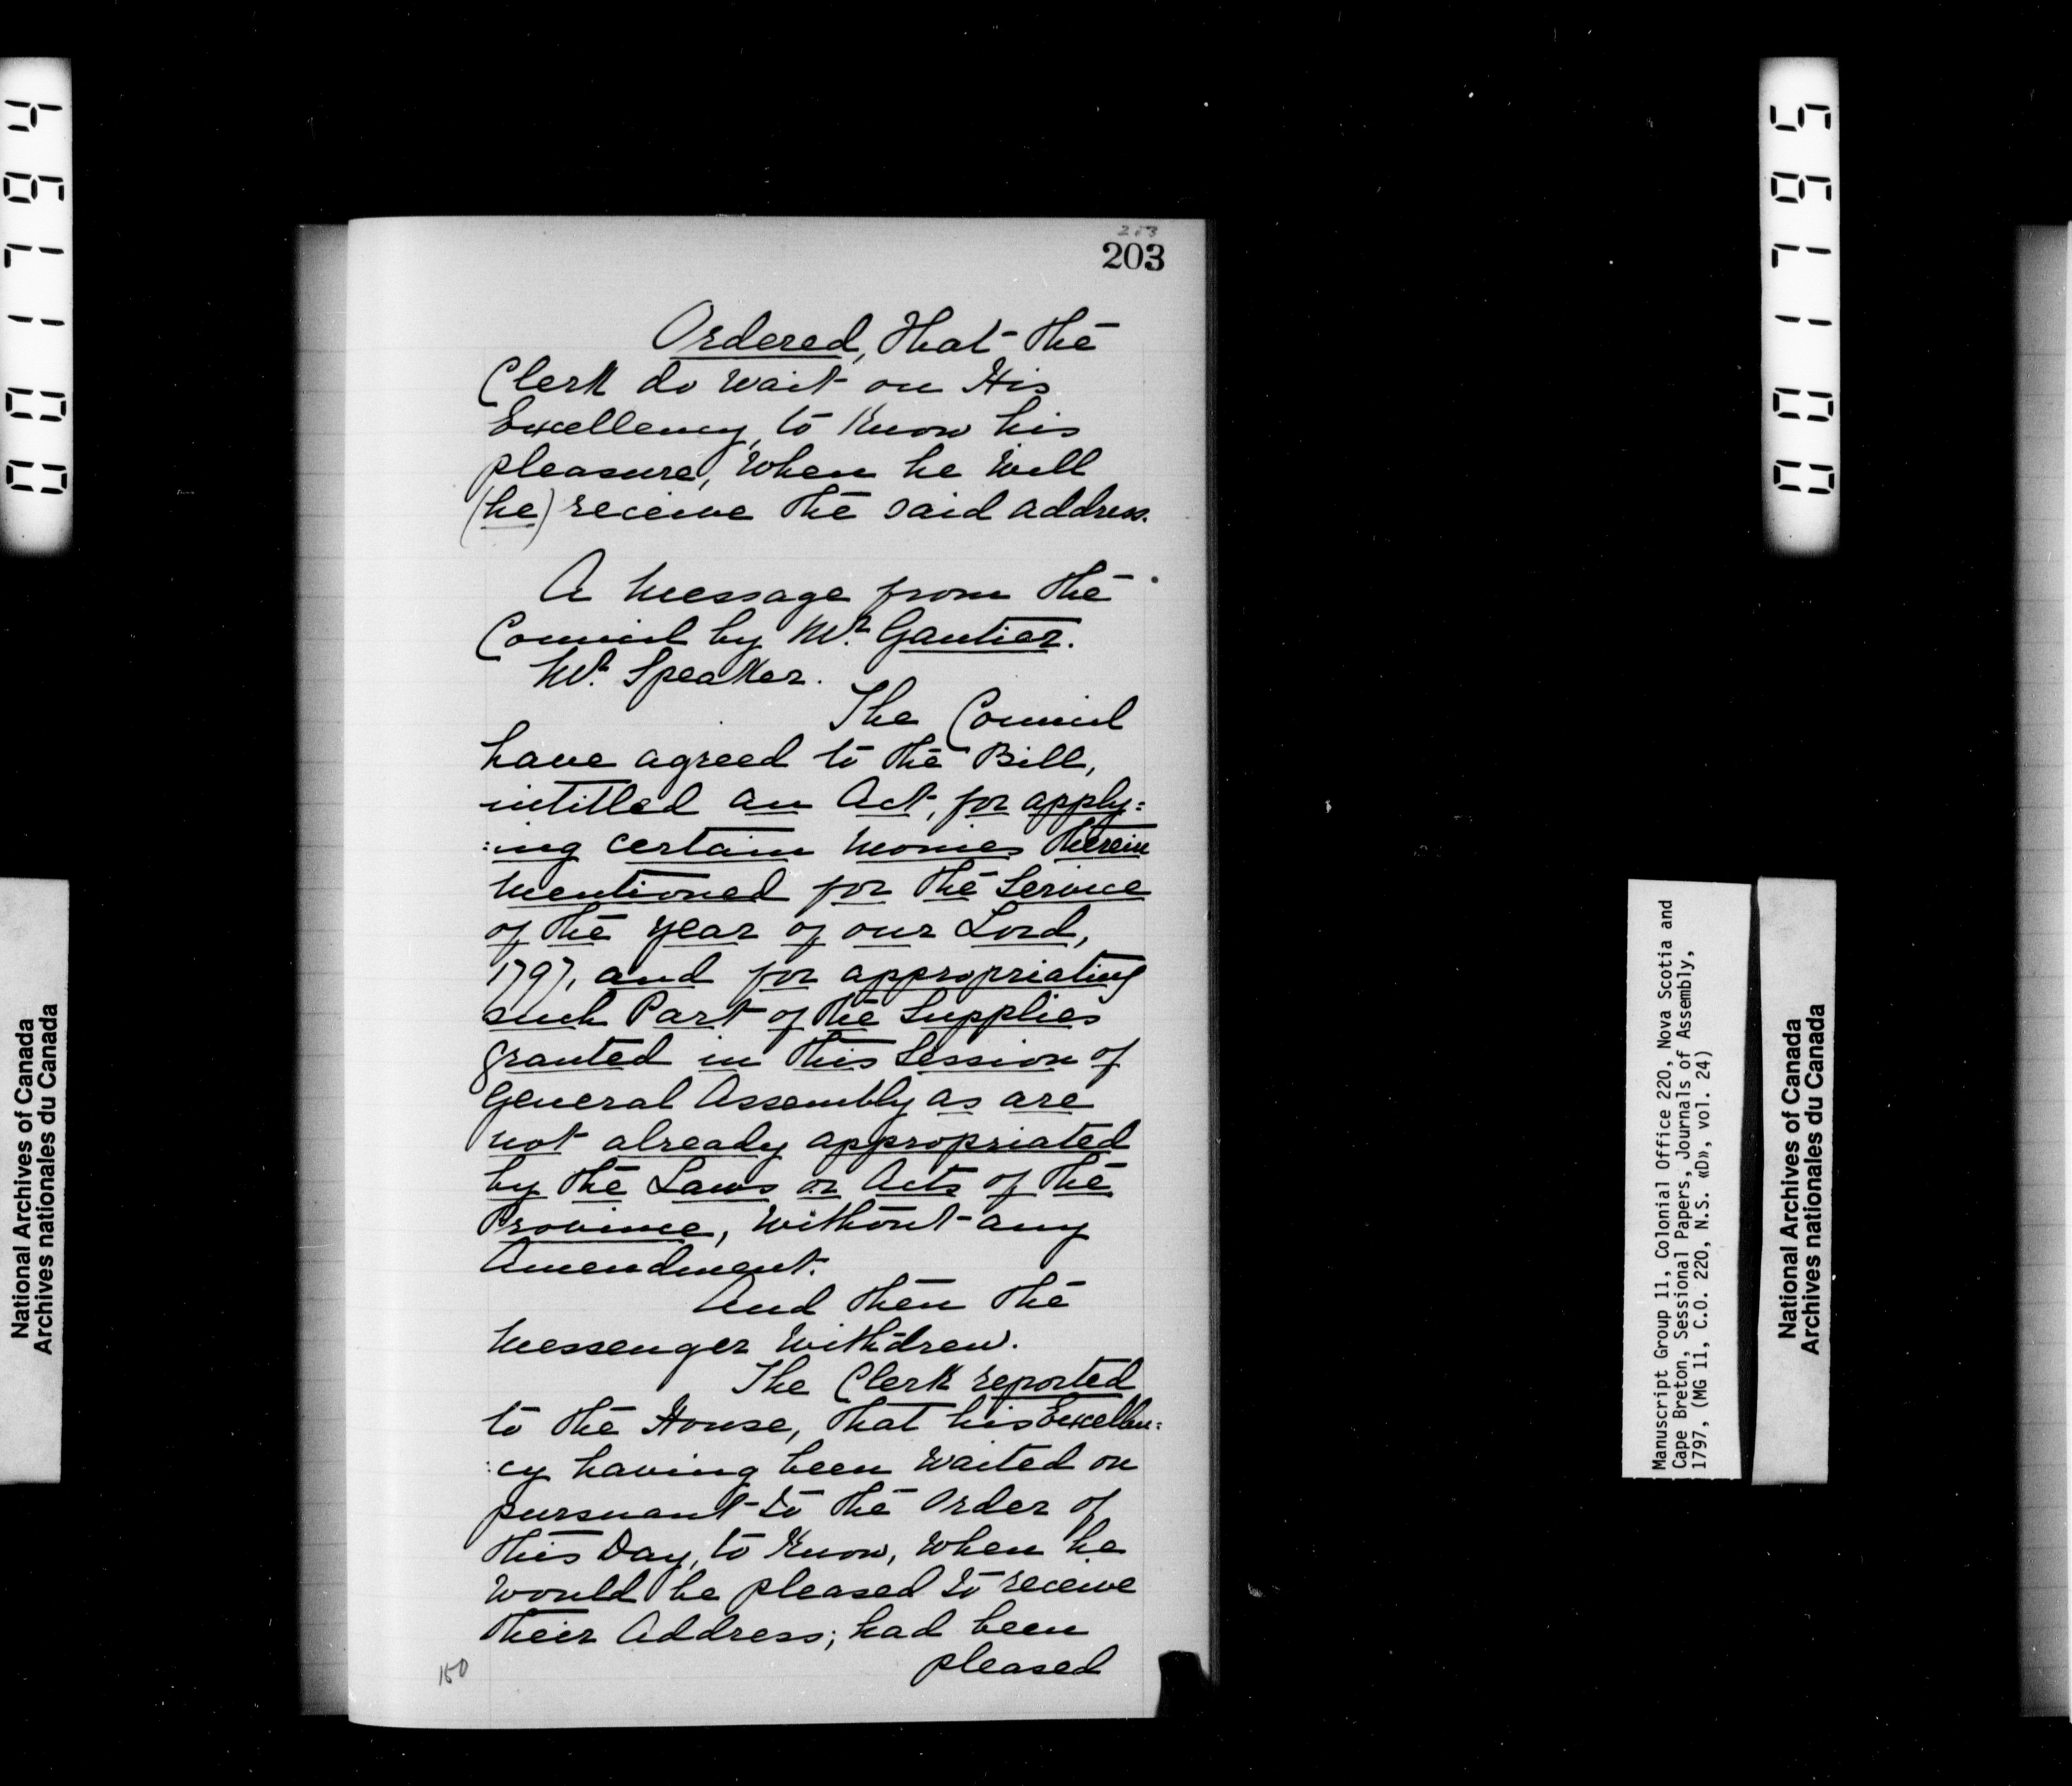 001194
National Archives of Canada
Archives nationales du Canada
203
203
Ordered, that the
Clerk do wait on His
Excellency, to know his
pleasure, when he will
(he) receive the said address.
A Message from the
Council by Mr. Gautier.
Mr. Speaker.
The Council
have agreed to the Bill,
intitled an Act, for apply=
:ing certain Monies therein
mentioned for the Service
of the year of our Lord,
1797, and for appropriating
such Part of the Supplies
granted in this Session of
General Assembly as are
not already appropriated
by the Laws or Acts of the
Province, without any
Amendment.
And then the
Messenger withdrew.
The Clerk reported
to the House, that his Excellen:
:cy having been waited on
pursuant to the Order of
this Day, to know, when he
would be pleased to receive
their Address; had been
pleased
150
001195
Manuscript Group 11, Colonial Office 220, Nova Scotia and
Cape Breton, Sessional Papers, Journals of Assembly,
1797, (MG 11, C.O. 220, N.S. «D», vol. 24)
National Archives of Canada
Archives nationales du Canada